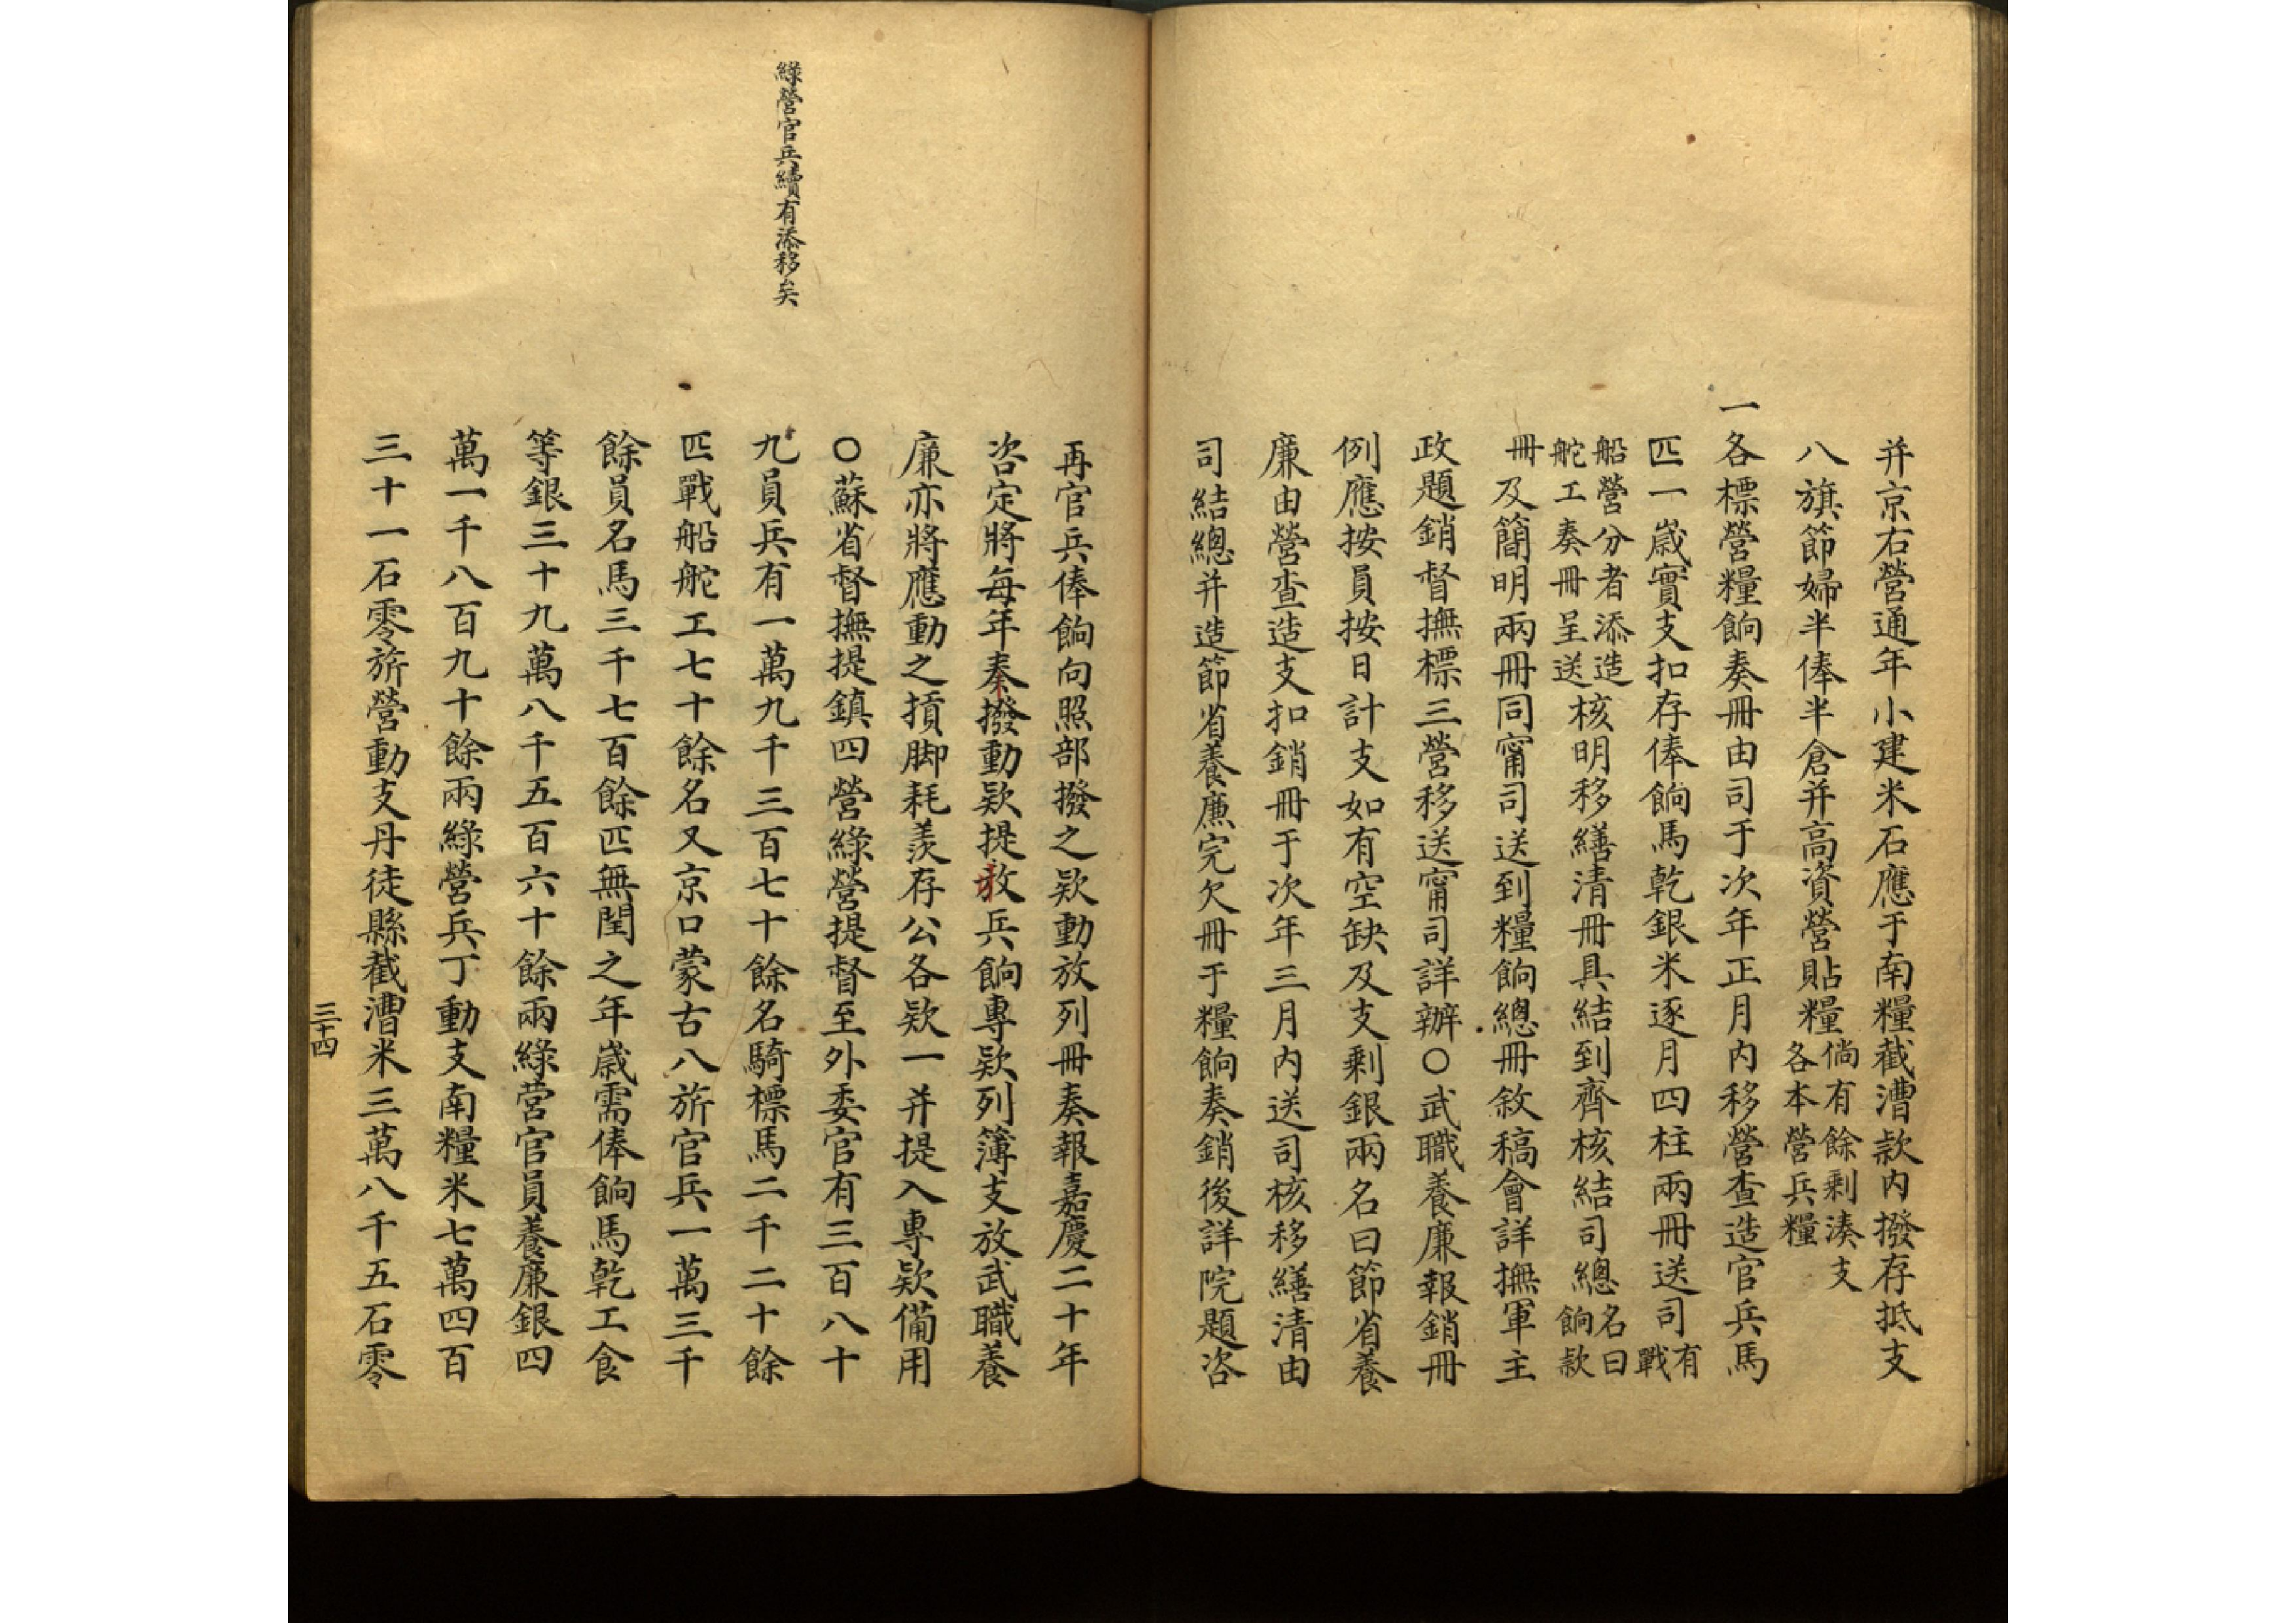 并京右營通年小建米石應于南糧截漕款内撥存抵支
八旗節婦半俸半倉并高資營貼糧倘有餘剩湊支各本營兵糧
一各標營糧餉奏冊由司于次年正月内移營查造官兵馬
匹一歲實支扣存俸餉馬乾銀米逐月四柱兩冊送司有戰
船營分者添造舵工奏冊呈送核明移繕清冊具結到齊核結司總名曰餉款
冊及簡明兩冊同甯司送到糧餉總冊敘稿會詳撫軍主
政題銷督撫標三營移送甯司詳辦○武職養廉報銷冊
例應按員按日計支如有空缺及支剩銀兩名曰節省養
廉由營查造支扣銷冊于次年三月内送司核移繕清由
司結總并造節省養廉完欠冊于糧餉奏銷後詳院題咨
再官兵俸餉向照部撥之欵動放列冊奏報嘉慶二十年
咨定將每年奏撥動欵提放兵餉專欵列簿支放武職養
廉亦將應動之摃脚耗羨存公各欵一并提入專欵備用
○蘇省督撫提鎮四營綠營提督至外委官有三百八十
綠營官兵續有添移矣
九員兵有一萬九千三百七十餘名騎標馬二千二十餘
匹戰船舵工七十餘名又京口蒙古八旂官兵一萬三千
餘員名馬三千七百餘匹無閏之年歲需俸餉馬乾工食
等銀三十九萬八千五百六十餘兩綠營官員養廉銀四
萬一千八百九十餘兩綠營兵丁動支南糧米七萬四百
三十一石零旂營動支丹徒縣截漕米三萬八千五石零
三十四